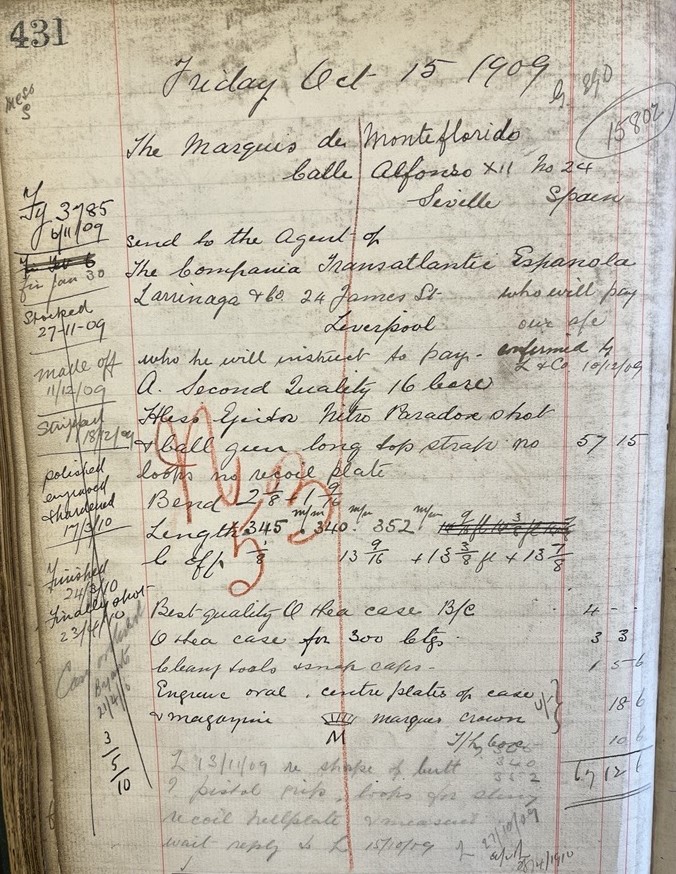 431
Friday Oct 15 1909
15802
The Marquis de Monteflorido
Calle Alfonso XII No 24
Seville Spain
3785
6/11/09
send to the Agent of
The Compania Transatlantic Espanola
Larrinaga & Co 24 James St who will pay
Liverpool our a/c
who he will instruct to pay - confirmed by
L & Co 10/12/09
A. Second Quality 16 bore
Hless Ejector Nitro Paradox shot
& ball gun long top strap no 57 15
loops no recoil plate
Bend
Length 345 m/m 340 m/m 352 m/m
C off 5/8 13 9/16 + 13 3/8 ft + 13 7/8
Best quality O & Lea case B/C 4 - -
O & Lea case for 300 ctgs 3 3
Cleang tools & snap caps - 1 5 - 6
Engrave oval, centre plates of case
& magazine M marquis crown 18 6
10 6
67 12 6
L 13/11/09 re shape of butt
340
352
? pistol grip, loops for sling
recoil heelplate & measure
wait reply to L 15/10/09
27/10/09
28/4/1910
Jan 30
Stocked
27-11-09
made off
11/12/09
18/12/09
polished
engraved
& hardened
17/3/10
Finished
24/3/10
Finally shot
23/4/10
21/4/10
3/5/10